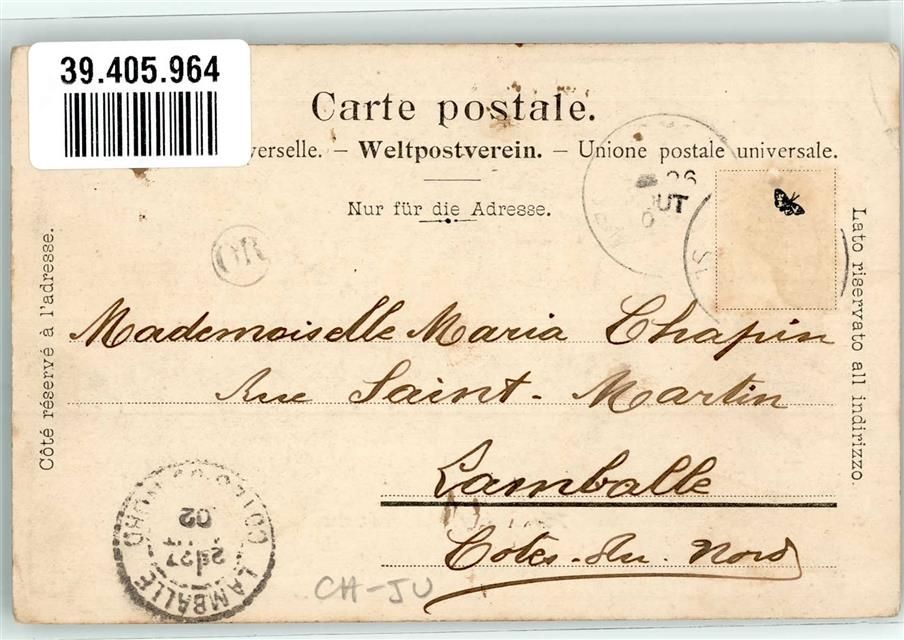 39.405.964
Carte postale.
verselle. – Weltpostverein. – Unione postale universale.
Nur für die Adresse.
OR
Côté réservé à l'adresse.
Lato riservato all indirizzo.
Mademoiselle Maria Chapin
Rue Saint-Martin
Lamballe
Côtes-du-Nord
LAMBALLE
02
CH-JU